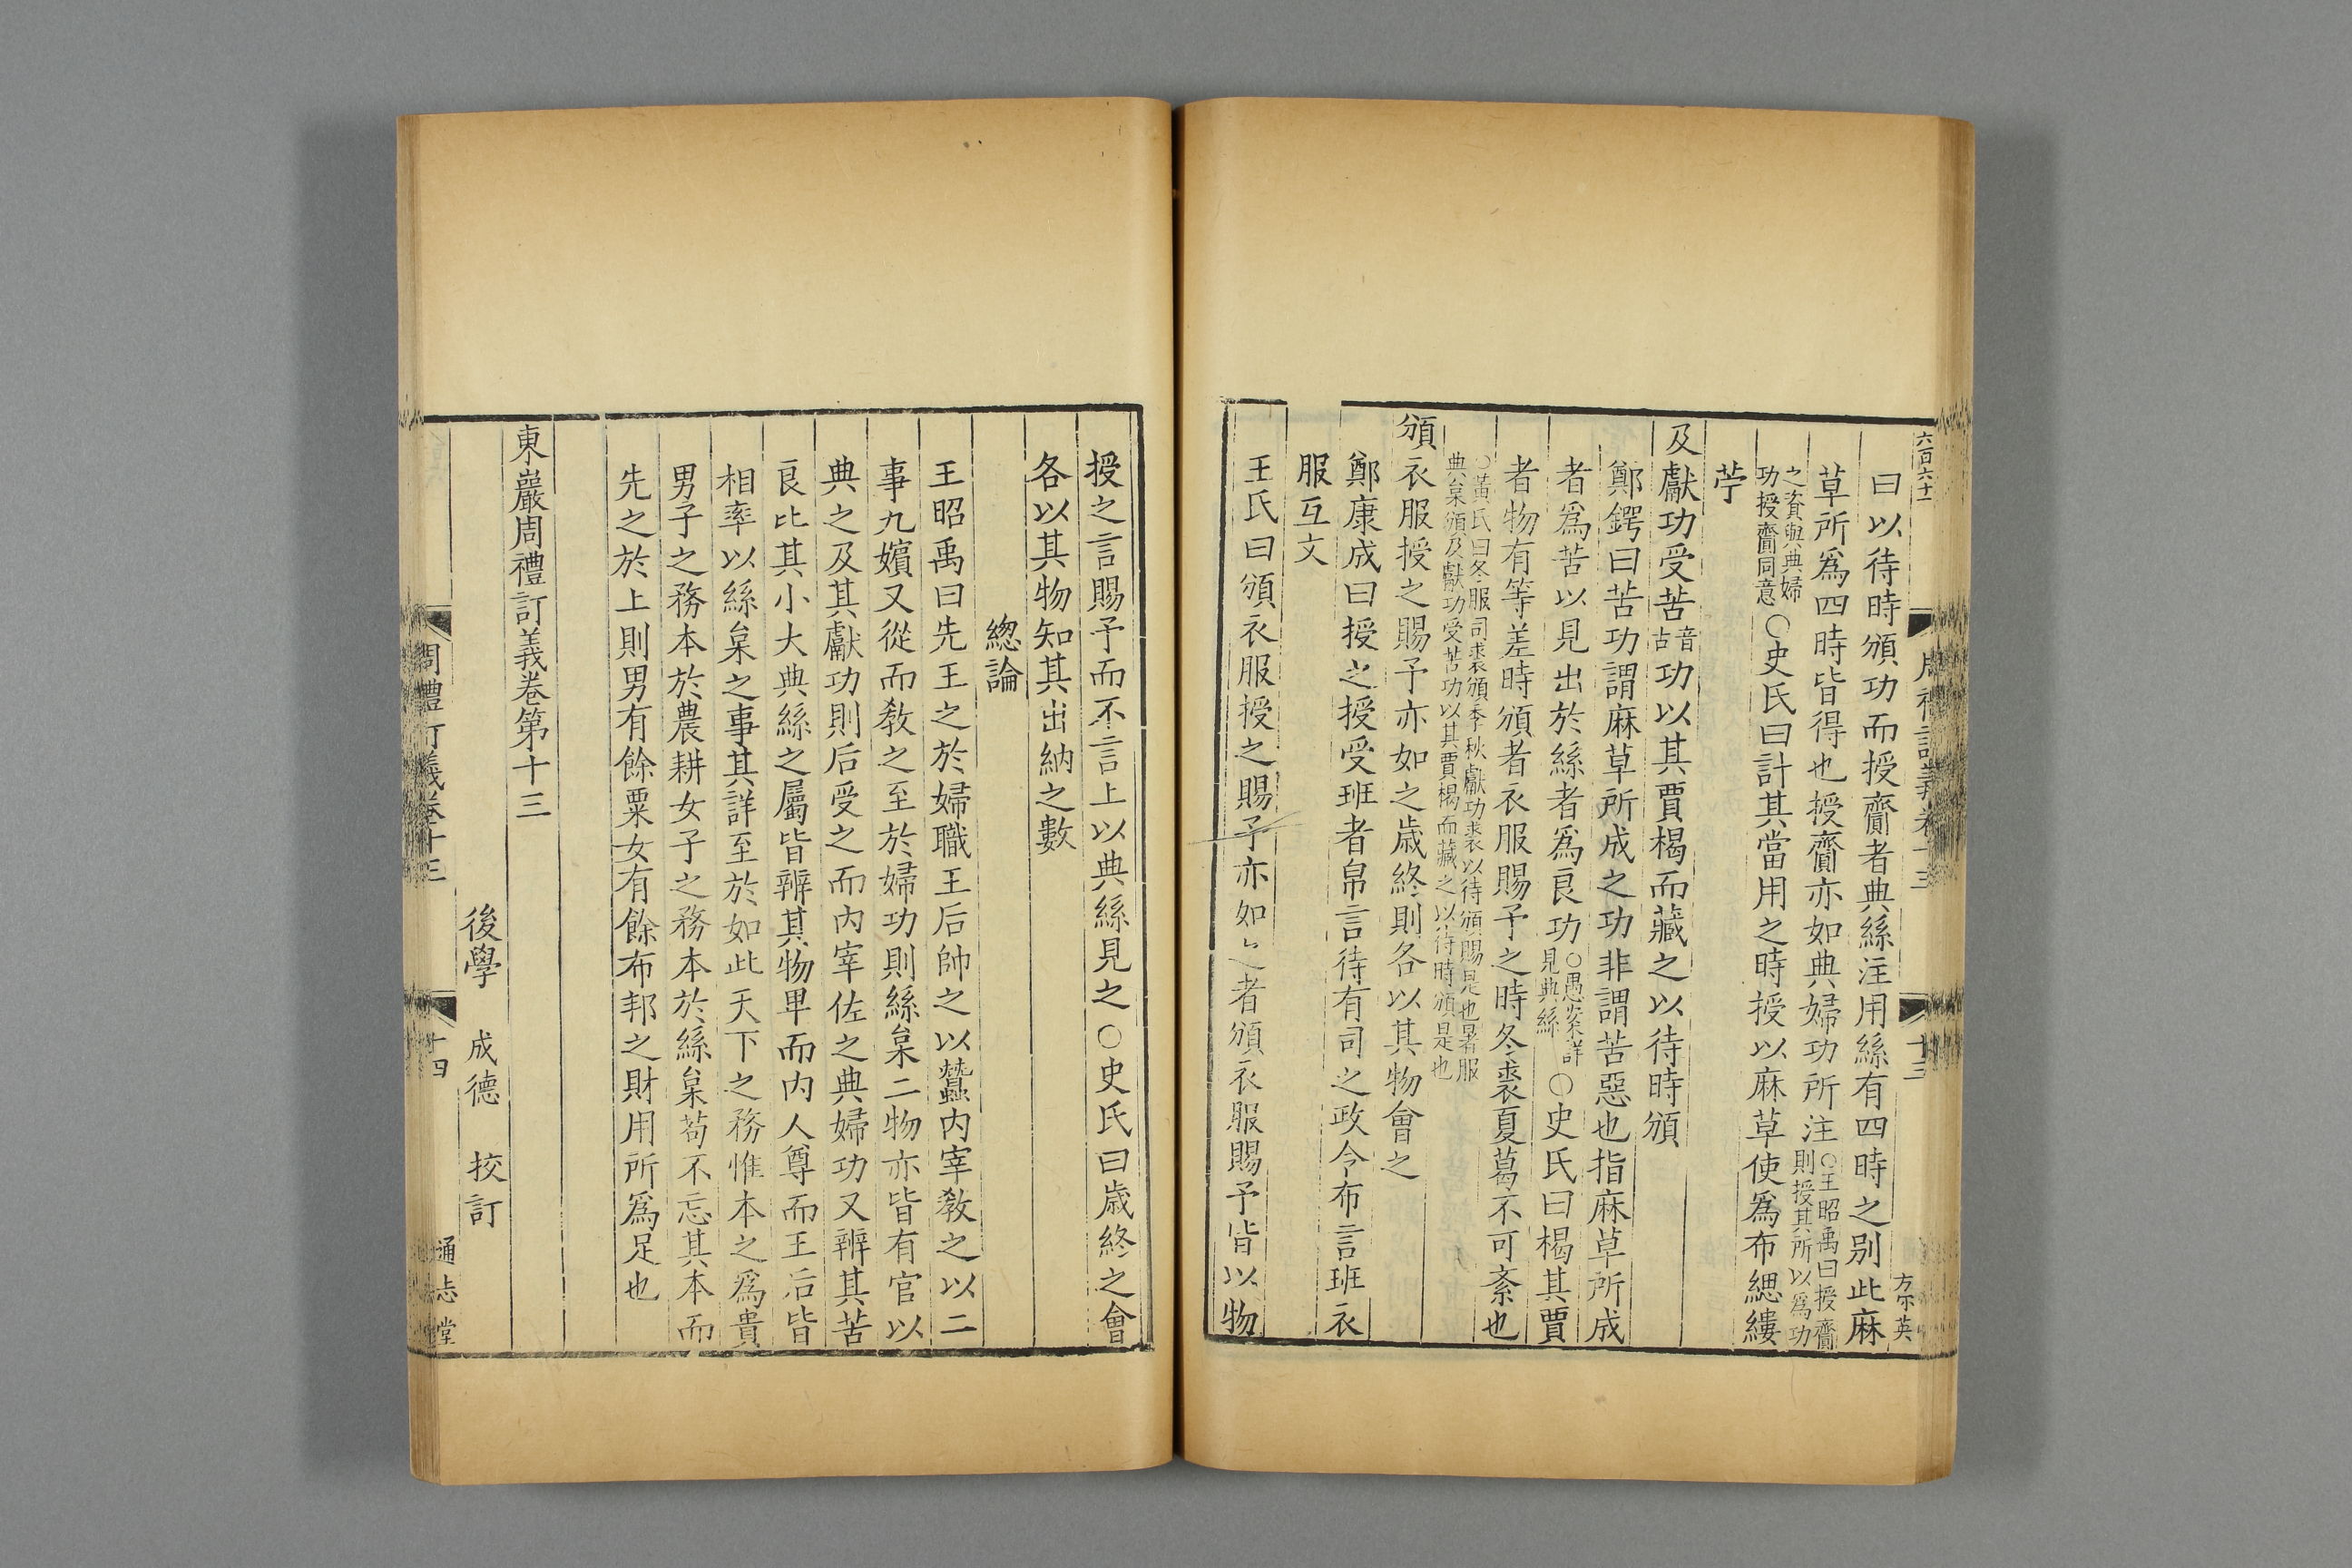 六百六十一
周禮訂義卷十三
十三
方家英
曰以待時頒功而授齎者典絲注用絲有四時之别此麻
草所爲四時皆得也授齎亦如典婦功所注○王昭禹曰授齎則授其所以爲功
之資與典婦功授齎同意○史氏曰計其當用之時授以麻草使爲布緦縷
苧
及獻功受苦音古功以其賈楬而藏之以待時頒
鄭鍔曰苦功謂麻草所成之功非謂苦惡也指麻草所成
者爲苦以見出於絲者爲良功○愚案詳見典絲○史氏曰楬其賈
者物有等差時頒者衣服賜予之時冬裘夏葛不可紊也
○黃氏曰冬服司裘頒季秋獻功裘以待頒賜是也暑服典枲頒及獻功受苦功以其賈楬而藏之以待時頒是也
頒衣服授之賜予亦如之歲終則各以其物會之
鄭康成曰授之授受班者帛言待有司之政令布言班衣
服互文
王氏曰頒衣服授之賜予亦如之者頒衣服賜予皆以物
授之言賜予而不言上以典絲見之○史氏曰歲終之會
各以其物知其出納之數
緫論
王昭禹曰先王之於婦職王后帥之以蠶内宰敎之以二
事九嬪又從而敎之至於婦功則絲枲二物亦皆有官以
典之及其獻功則后受之而内宰佐之典婦功又辨其苦
良比其小大典絲之屬皆辨其物卑而内人尊而王后皆
相率以絲枲之事其詳至於如此天下之務惟本之爲貴
男子之務本於農耕女子之務本於絲枲苟不忘其本而
先之於上則男有餘粟女有餘布邦之財用所爲足也
東巖周禮訂義卷第十三
後學 成德 挍訂
周禮訂義卷十三
十四
通志堂